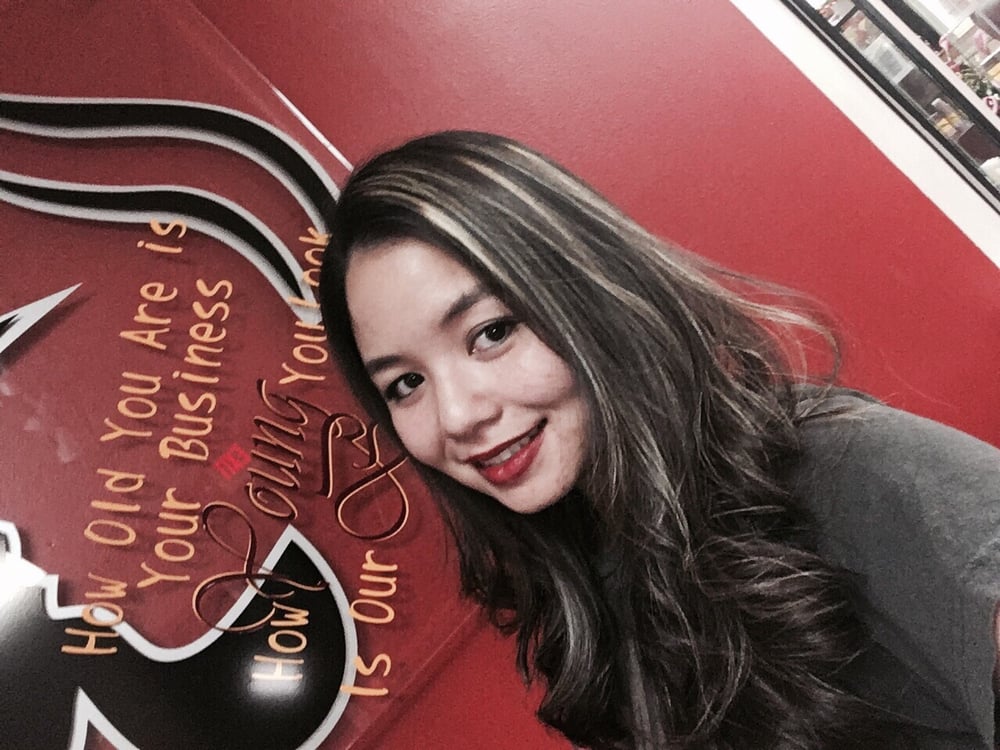 How Old You Are is
Your Business
How Young You Look
Is Our